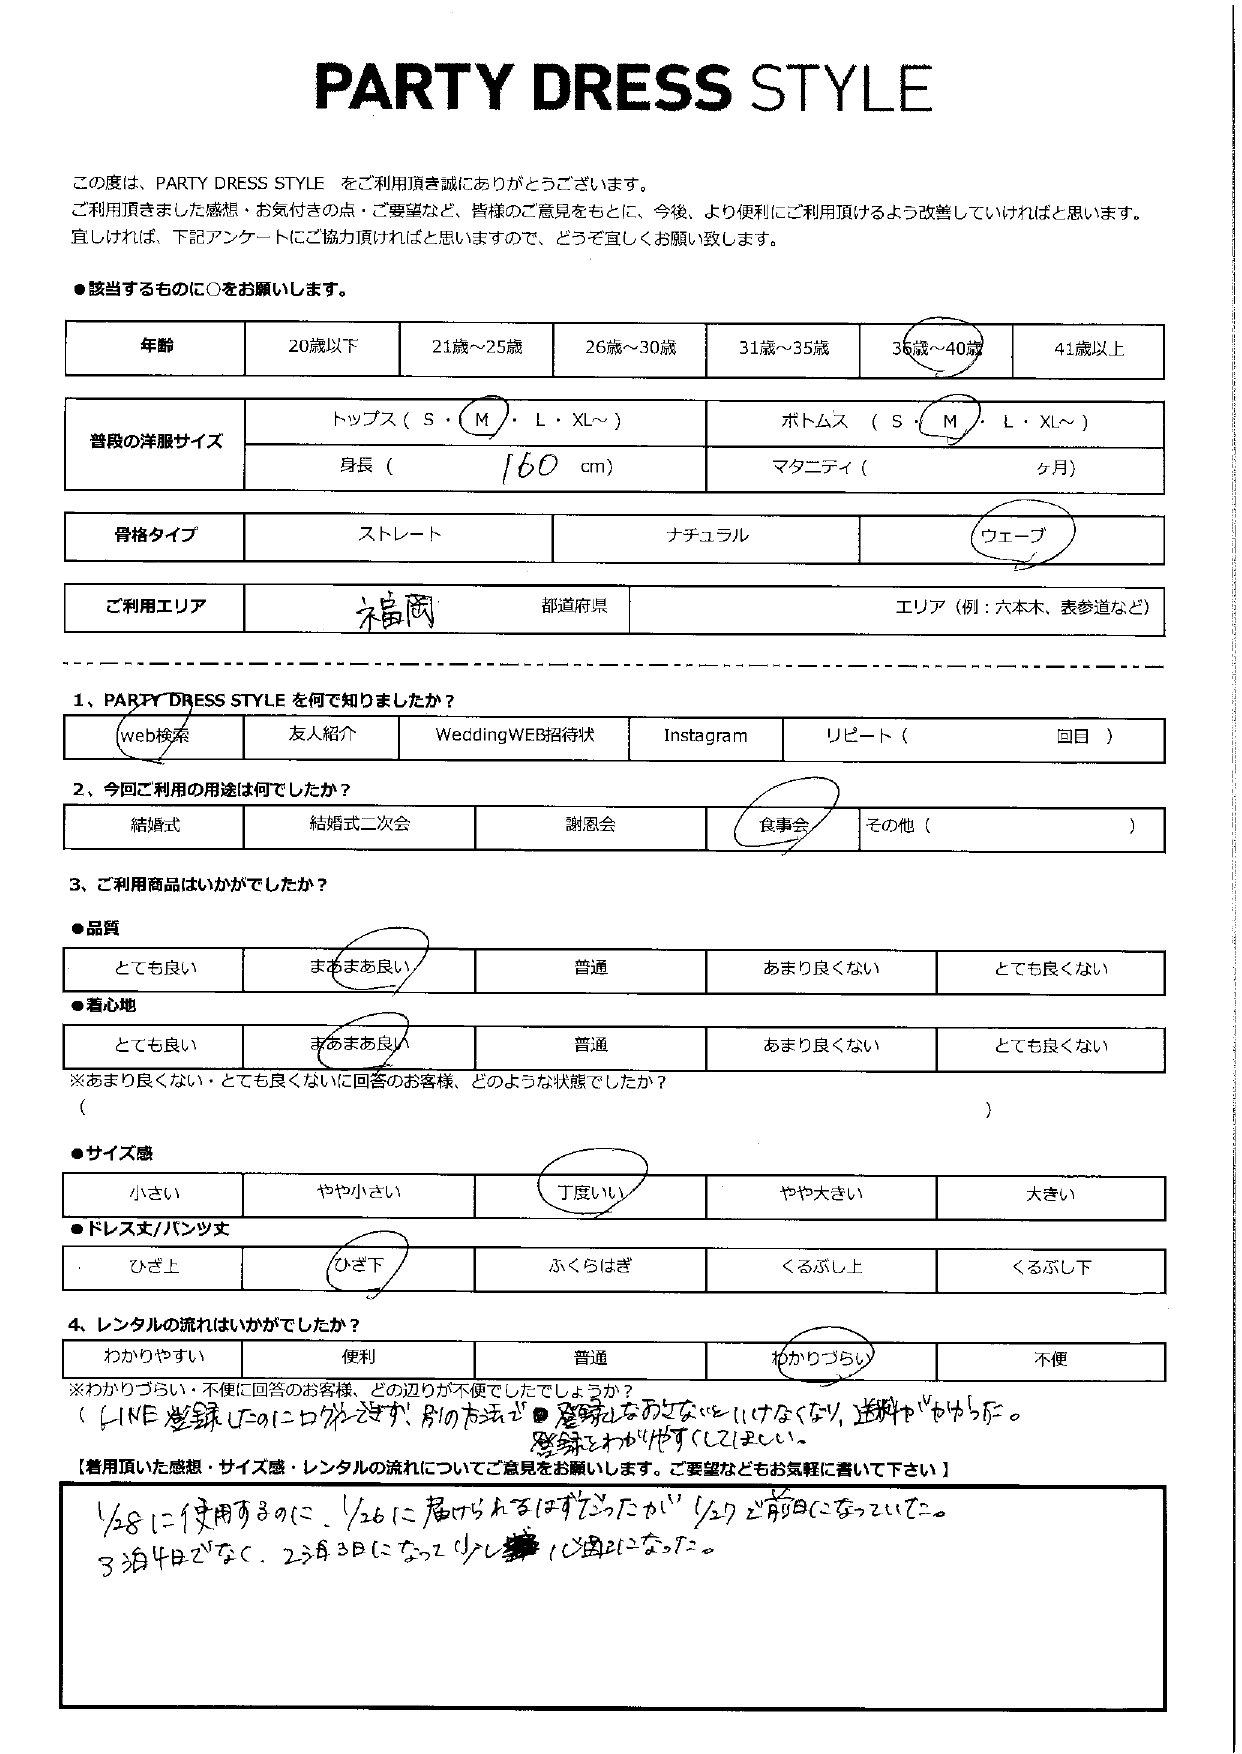 PARTY DRESS STYLE
この度は、PARTY DRESS STYLE をご利用頂き誠にありがとうございます。
ご利用頂きました感想・お気付きの点・ご要望など、皆様のご意見をもとに、今後、より便利にご利用頂けるよう改善していければと思います。
宜しければ、下記アンケートにご協力頂ければと思いますので、どうぞ宜しくお願い致します。
●該当するものに○をお願いします。
年齢 20歳以下 21歳～25歳 26歳～30歳 31歳～35歳 36歳～40歳 41歳以上
普段の洋服サイズ トップス ( S ・ M ・ L ・ XL～ ) ボトムス ( S ・ M ・ L ・ XL～ )
身長 ( 160 cm) マタニティ ( ヶ月)
骨格タイプ ストレート ナチュラル ウェーブ
ご利用エリア 福岡 都道府県 エリア（例：六本木、表参道など）
1、PARTY DRESS STYLE を何で知りましたか？
web検索 友人紹介 WeddingWEB招待状 Instagram リピート（ 回目 ）
2、今回ご利用の用途は何でしたか？
結婚式 結婚式二次会 謝恩会 食事会 その他（ ）
3、ご利用商品はいかがでしたか？
●品質
とても良い まあまあ良い 普通 あまり良くない とても良くない
●着心地
とても良い まあまあ良い 普通 あまり良くない とても良くない
※あまり良くない・とても良くないに回答のお客様、どのような状態でしたか？
（ ）
●サイズ感
小さい やや小さい 丁度いい やや大きい 大きい
●ドレス丈/パンツ丈
ひざ上 ひざ下 ふくらはぎ くるぶし上 くるぶし下
4、レンタルの流れはいかがでしたか？
わかりやすい 便利 普通 わかりづらい 不便
※わかりづらい・不便に回答のお客様、どの辺りが不便でしたでしょうか？
（ LINE登録したのにログインできず、別の方法で登録しなおさないといけなくなり、送料がかかった。
登録をわかりやすくしてほしい。
【着用頂いた感想・サイズ感・レンタルの流れについてご意見をお願いします。ご要望などもお気軽に書いて下さい 】
1/28に使用するのに、1/26に届けられるはずだったが 1/27で前日になっていた。
3泊4日でなく、2泊3日になって少し心配になった。